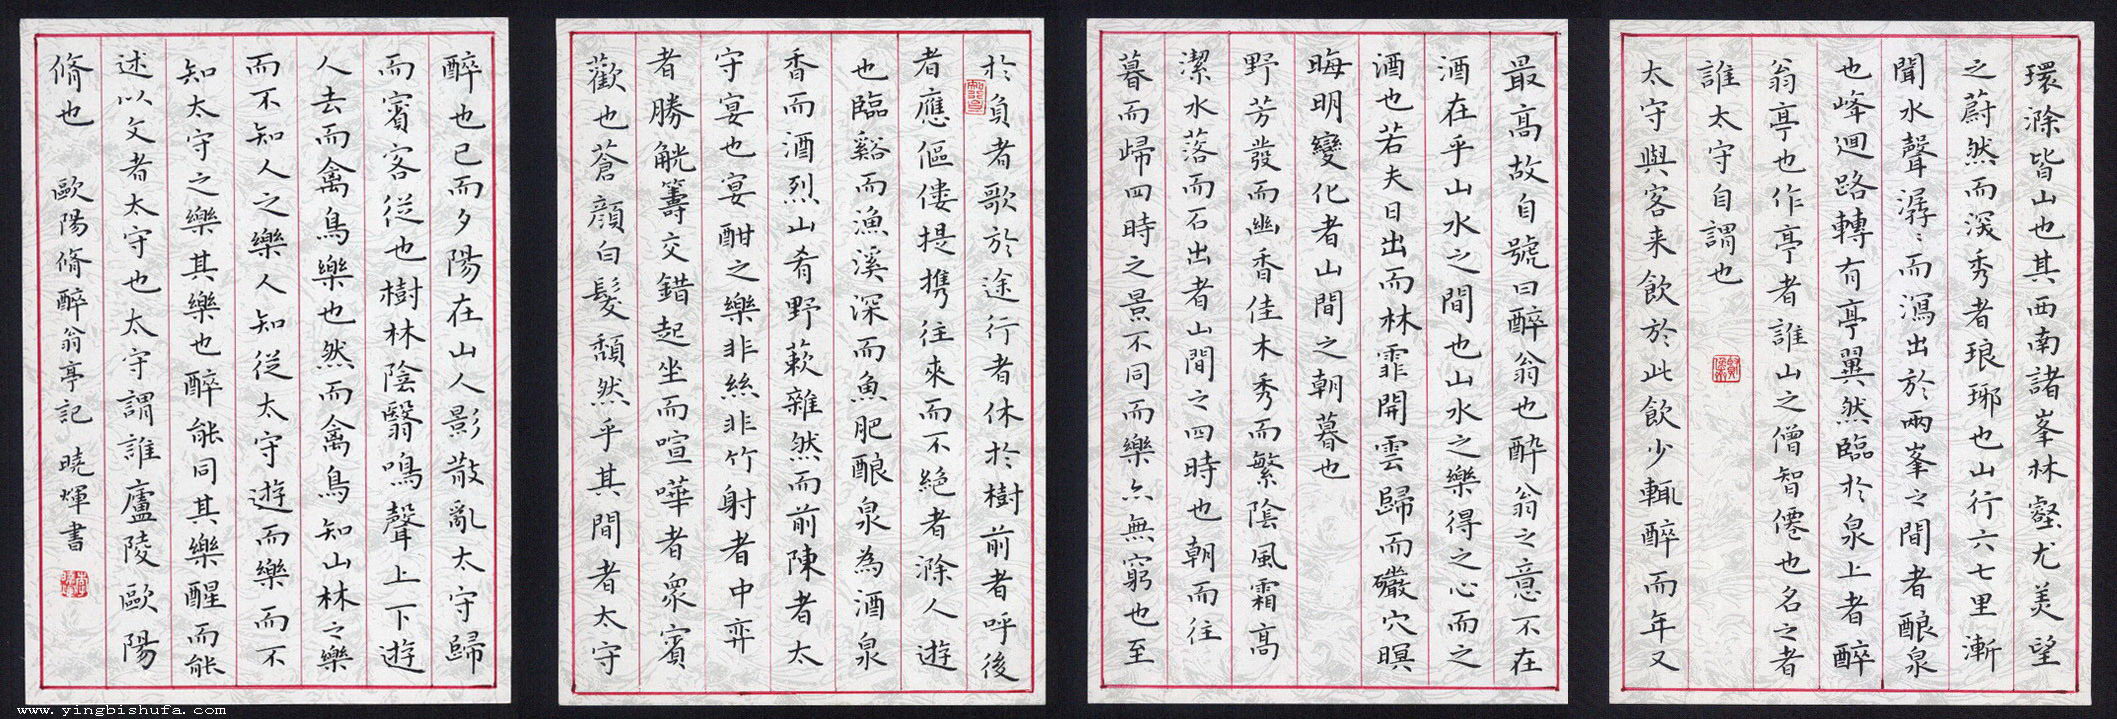 環滁皆山也其西南諸峯林壑尤美望
之蔚然而深秀者琅琊也山行六七里漸
聞水聲潺〻而瀉出於兩峯之間者釀泉
也峰迴路轉有亭翼然臨於泉上者醉
翁亭也作亭者誰山之僧智僊也名之者
誰太守自謂也
太守與客来飲於此飲少輒醉而年又
最高故自號曰醉翁也醉翁之意不在
酒在乎山水之間也山水之樂得之心而之
酒也若夫日出而林霏開雲歸而巖穴暝
晦明變化者山間之朝暮也
野芳發而幽香佳木秀而繁陰風霜高
潔水落而石出者山間之四時也朝而往
暮而歸四時之景不同而樂亦無窮也至
於負者歌於途行者休於樹前者呼後
者應傴僂提携往來而不絕者滁人遊
也臨谿而漁溪深而魚肥釀泉為酒泉
香而酒烈山肴野蔌雜然而前陳者太
守宴也宴酣之樂非絲非竹射者中弈
者勝觥籌交錯起坐而喧嘩者眾賓
歡也蒼顏白髮頹然乎其間者太守
醉也已而夕陽在山人影散亂太守歸
而賓客從也樹林陰翳鳴聲上下遊
人去而禽鳥樂也然而禽鳥知山林之樂
而不知人之樂人知從太守遊而樂而不
知太守之樂其樂也醉能同其樂醒而能
述以文者太守也太守謂誰廬陵歐陽
脩也 歐陽脩醉翁亭記 曉煇書
www.yingbishufa.com